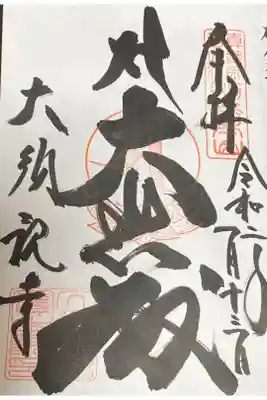 奉拝
令和二年一月十三日
大悲殿
大須観音